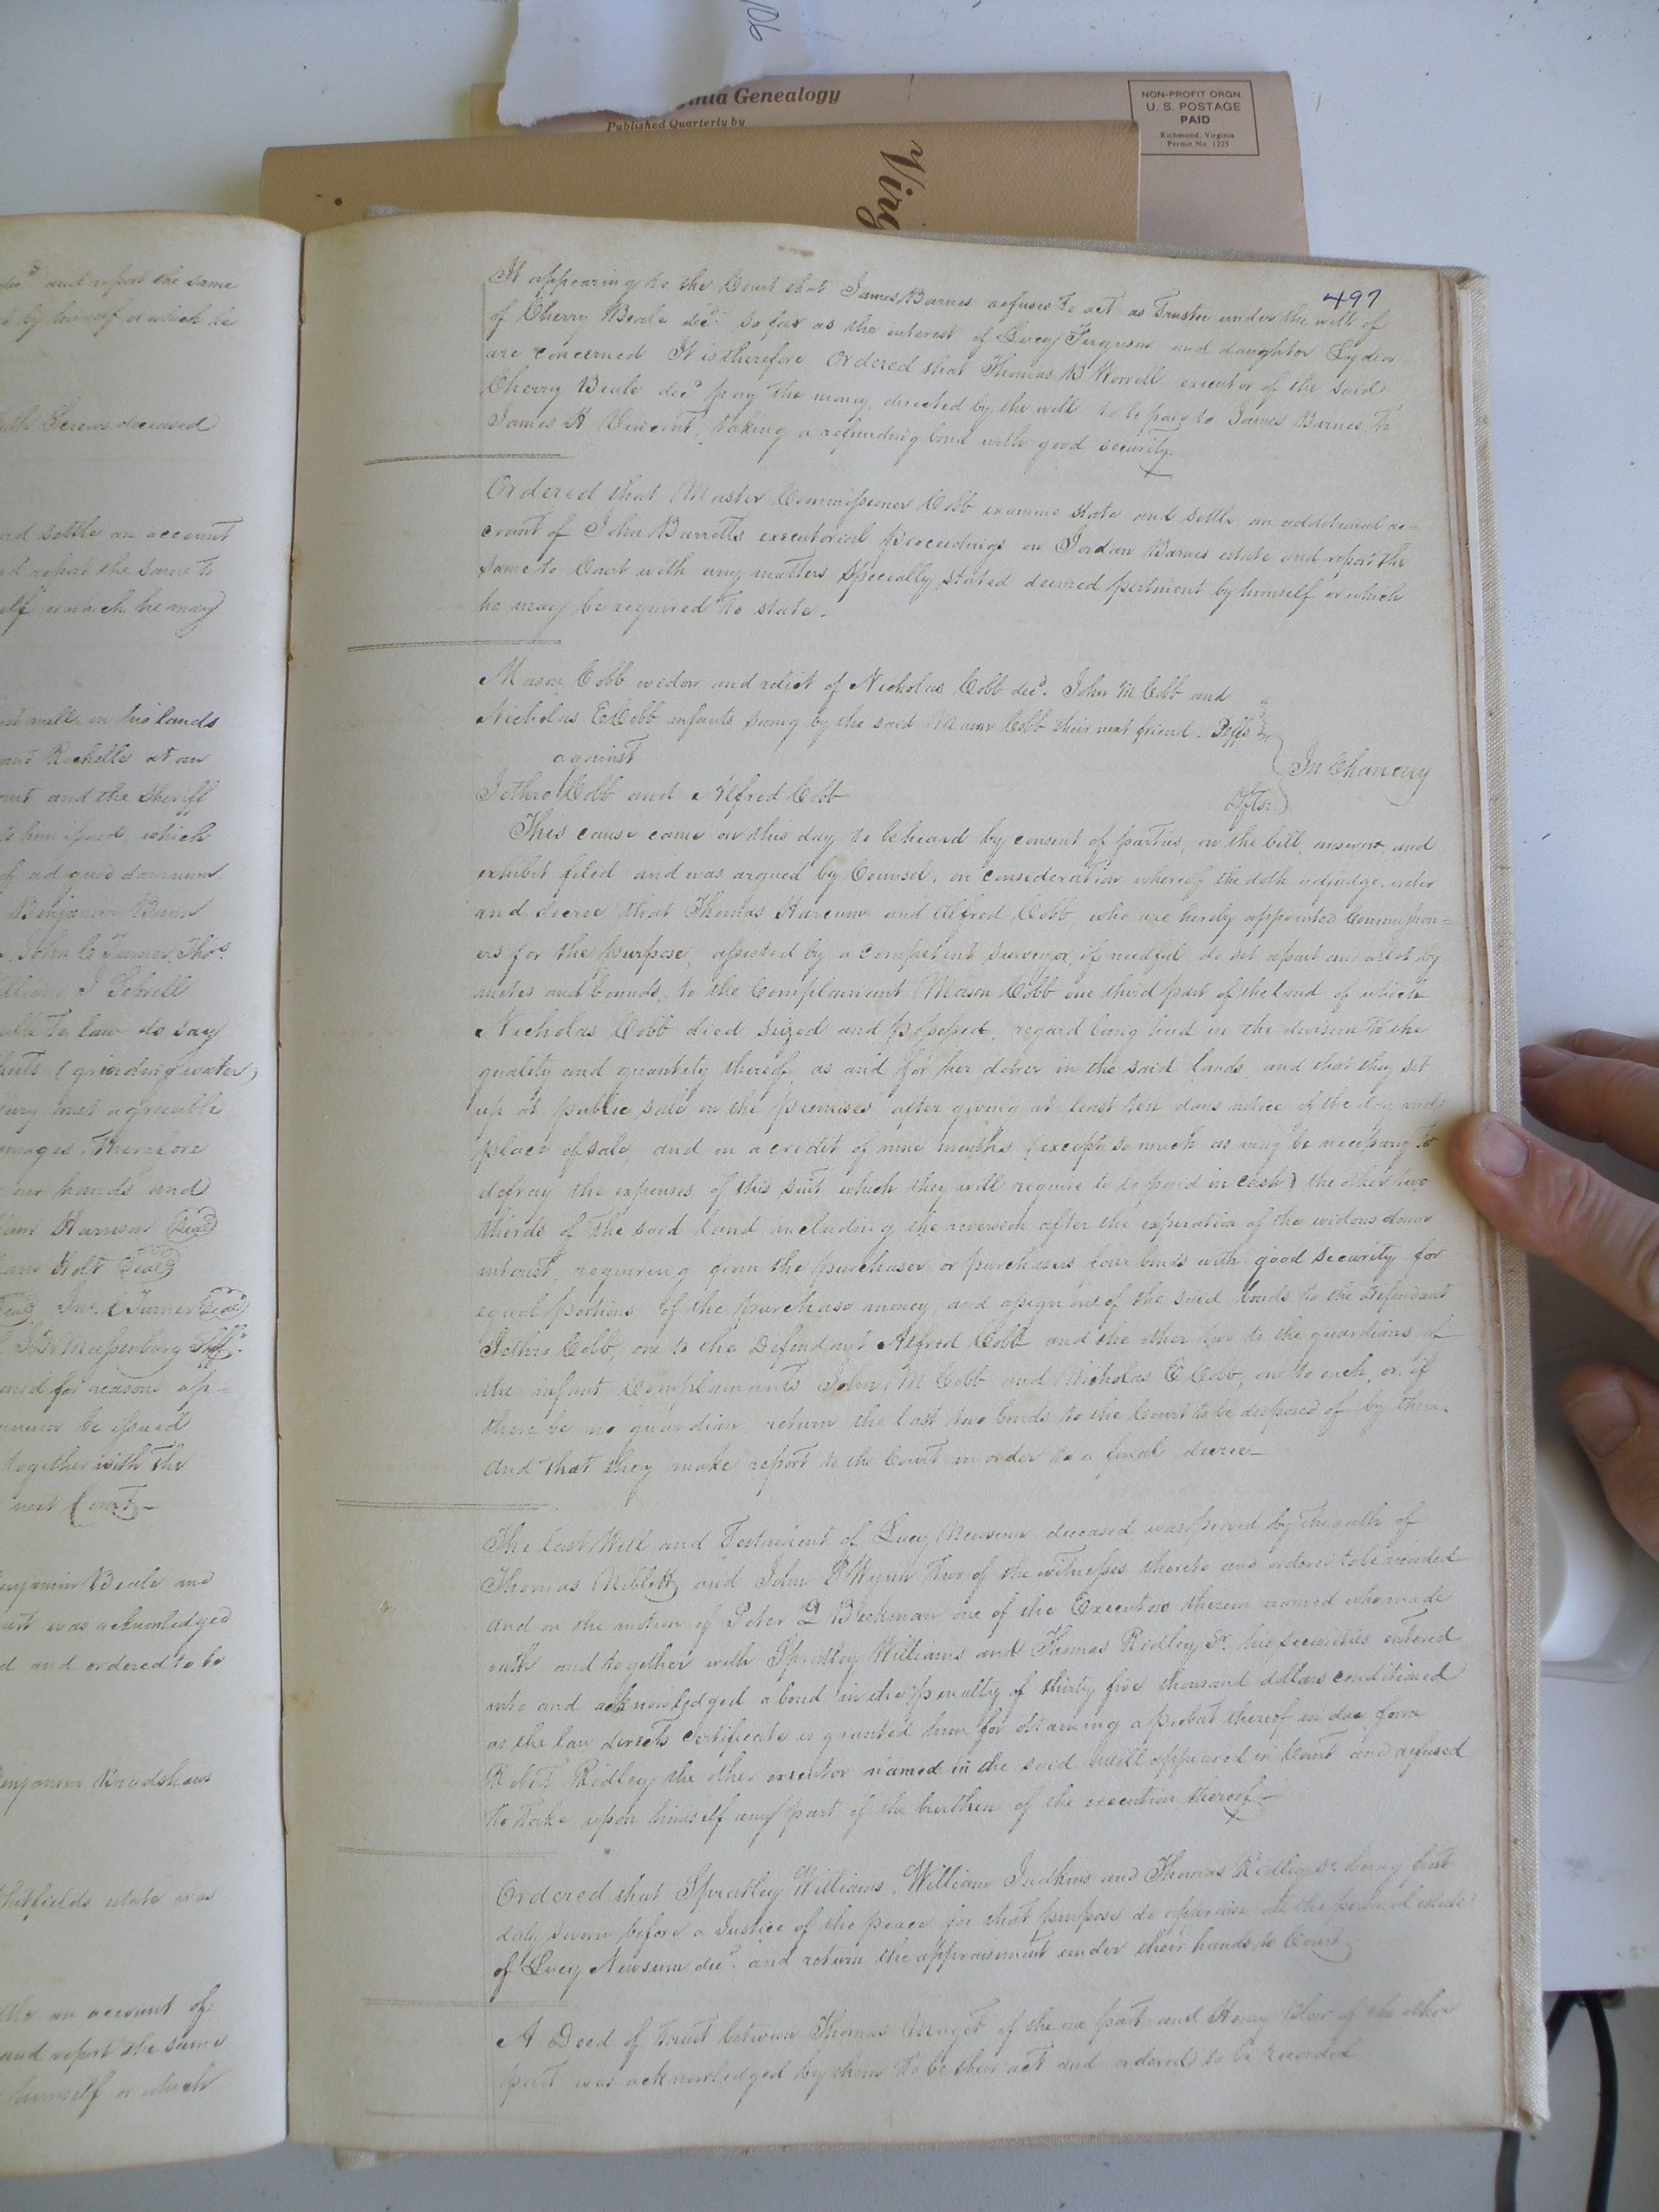 06
ginia Genealogy
Published Quarterly by
NON-PROFIT ORGN.
U. S. POSTAGE
PAID
Richmond, Virginia
Permit No. 1225
Virg
decd and report the same
by himself or which he
deceased
and settle an account
and report the same to
himself or which he may
mill on his lands
and Rochelle at an
and the Sheriff
to him issued which
of ad quod damnum
Benjamin Bunn
John C Turner, Thos.
J Sebrell
to law do say
(grinding water)
jury met agreeable
Therefore
our hands and
Harrison (Seal)
Holt (Seal)
(Seal) Jno. C Turner (Seal)
Massenburg Shff.
and for reasons ap=
be issued
together with the
next Court
Benjamin Beale and
was acknowledged
and ordered to be
Benjamin Bradshaw
estate was
an account of
and report the same
himself or which
497
It appearing to the Court that James Barnes refuses to act as Trustee under the will of
of Cherry Beale decd. so far as the interest of Lucy Ferguson and daughter Lydia
are concerned It is therefore Ordered that Thomas B Worrell executor of the said
Cherry Beale decd pay the money, directed by the will to be paid to James Barnes, to
James H Vincent, taking a refunding bond with good security.
Ordered that Master Commissioner Cobb examine state and settle an additional ac=
count of John Barretts executorial proceedings on Jordan Barnes estate and report the
same to Court with any matters specially stated deemed pertinent by himself or which
he may be required to state.
Mason Cobb widow and relict of Nicholas Cobb decd. John M Cobb and
Nicholas E Cobb infants suing by the said Mason Cobb their next friend. Plffs
against
In Chancery
Jethro Cobb and Alfred Cobb
Dfts.
This cause came on this day to be heard by consent of parties, on the bill, answers, and
exhibit filed and was argued by Counsel, on consideration whereof the doth adjudge, order
and decree that Thomas Harcum and Alfred Cobb, who are hereby appointed Commission=
ers for the purpose, assisted by a competent surveyor, if needful, do set apart and allot by
metes and bounds, to the Complainant Mason Cobb one third part of the land of which
Nicholas Cobb died seized and possessed, regard being had in the division to the
quality and quantity thereof, as and for her dower in the said lands, and that they set
up at public sale on the premises, after giving at least ten days notice of the day and
place of sale, and on a credit of nine months (except so much as may be necessary to
defray the expenses of this suit which they will require to be paid in cash) the other two
thirds of the said land including the reversion after the experation of the widows dower
interest, requiring from the purchaser or purchasers four bonds with good security for
equal portions of the purchase money, and assign one of the said bonds to the Defendant
Jethro Cobb, one to the Defendant Alfred Cobb and the other two to the guardians of
the infant Complainants John M Cobb and Nicholas E Cobb, one to each, or if
there be no guardian return the last two bonds to the Court to be disposed of by them.
And that they make report to the Court in order to a final decree—
The last Will and Testament of Lucy Newsum deceased was proved by the oath of
Thomas Niblett and John P Wynn Two of the witnesses thereto and ordered to be recorded
And on the motion of Peter D Blackman one of the Executors therein named who made
oath and together with Spratley Williams and Thomas Ridley Sr. his securities entered
into and acknowledged a bond in the penalty of thirty five thousand dollars conditioned
as the law directs certificate is granted him for obtaining a probat thereof in due form
Robt. Ridley the other executor named in the said will appeared in Court and refused
to take upon himself any part of the burthen of the execution thereof—
Ordered that Spratley Williams, William Judkins and Thomas Ridley Sr. being first
duly sworn before a Justice of the peace for that purpose do appraise all the personal estate
of Lucy Newsum decd. and return the appraisement under their hands to Court
A Deed of Trust between Thomas of the one part and Henry of the other
part was acknowledged by them to be their act and ordered to be recorded